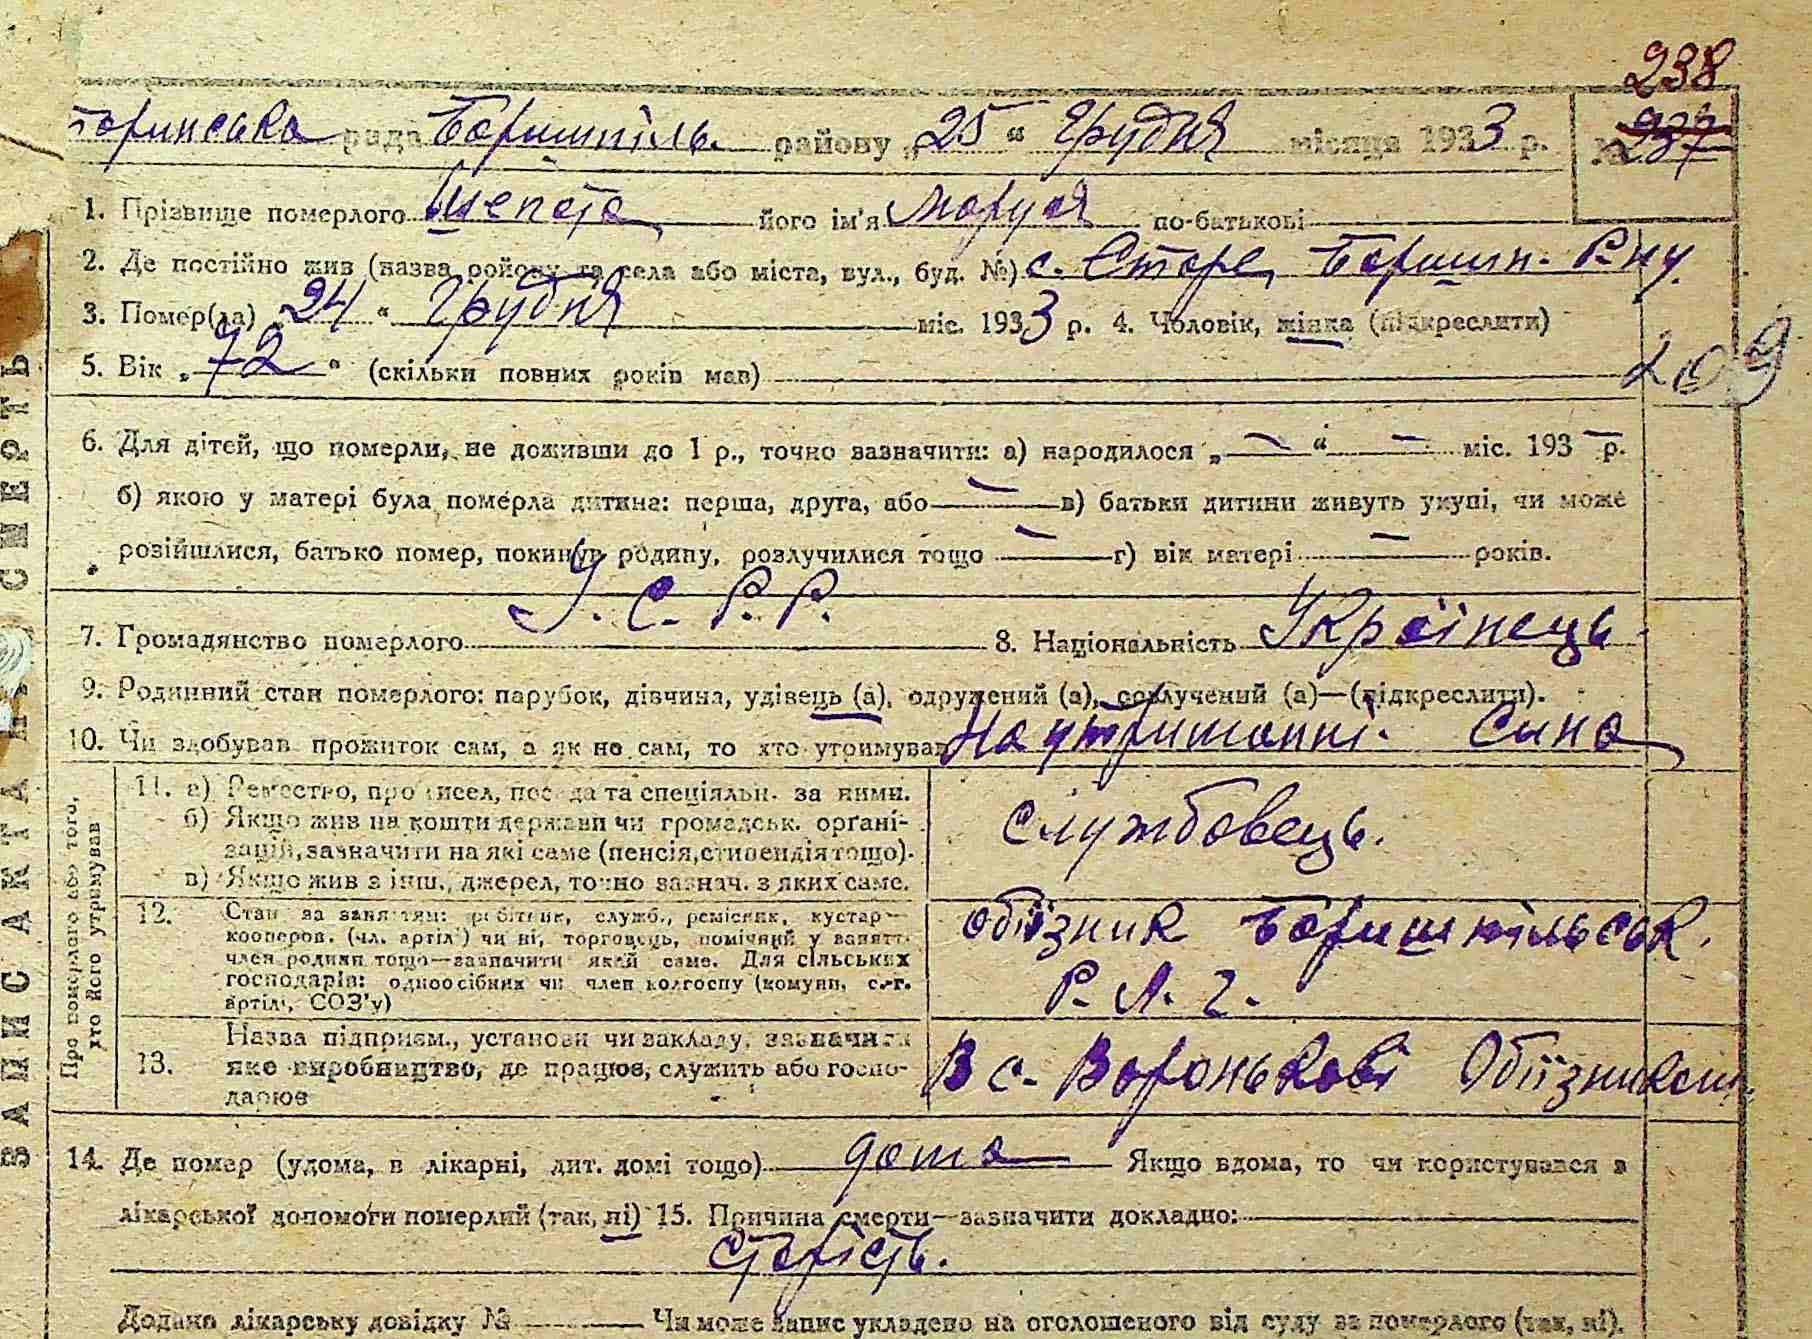 238
торинська рада Бориспіль. району „25“ Грудня місяця 1933 р. № 237
1. Прізвище померлого Шепета його ім'я Маруся по-батькові
2. Де постійно жив (назва району та села або міста, вул., буд. №) с. Старе, Боришп. Р-ну.
3. Помер(ла) „24“ Грудня міс. 1933 р. 4. Чоловік, жінка (підкреслити)
5. Вік „72“ (скільки повних років мав) 209
6. Для дітей, що померли, не доживши до 1 р., точно зазначити: а) народилося „—“ — міс. 193— р.
б) якою у матері була померла дитина: перша, друга, або — в) батьки дитини живуть укупі, чи може
розійшлися, батько помер, покинув родину, розлучилися тощо — г) вік матері — років.
7. Громадянство померлого У. С. Р. Р. 8. Національність Українець
9. Родинний стан померлого: парубок, дівчина, удівець (а), одружений (а), розлучений (а)—(підкреслити).
10. Чи здобував прожиток сам, а як не сам, то хто утримував На утриманні. Сина
ЗАПИС АКТА ПРО СМЕРТЬ
Про померлого або того,
хто його утримував
11. а) Ремество, промисел, посада та спеціяльн. за ними.
б) Якщо жив на кошти держави чи громадськ. органі-
зацій, зазначити на які саме (пенсія, стипендія тощо).
в) Якщо жив з інш., джерел, точно зазнач. з яких саме.
Службовець.
12. Стан за заняттям: робітник, служб., ремісник, кустар—
кооперов. (чл. артілі) чи ні, торговець, помічний у занятт.
член родини тощо—зазначити який саме. Для сільських
господарів: одноосібник чи член колгоспу (комуни, с.-г.
артілі, СОЗ'у)
обїзник Боришпільськ.
Р. Л. Г.
13. Назва підприєм., установи чи закладу, зазначити
яке виробництво, де працює, служить або госпо-
дарює
В с. Воронькові Обїзником
14. Де помер (удома, в лікарні, дит. домі тощо) дома Якщо вдома, то чи користувався з
лікарської допомоги померлий (так, ні) 15. Причина смерти—зазначити докладно:
старість.
Додано лікарську довідку № Чи може запис укладено на оголошеного від суду за померлого (так, ні).